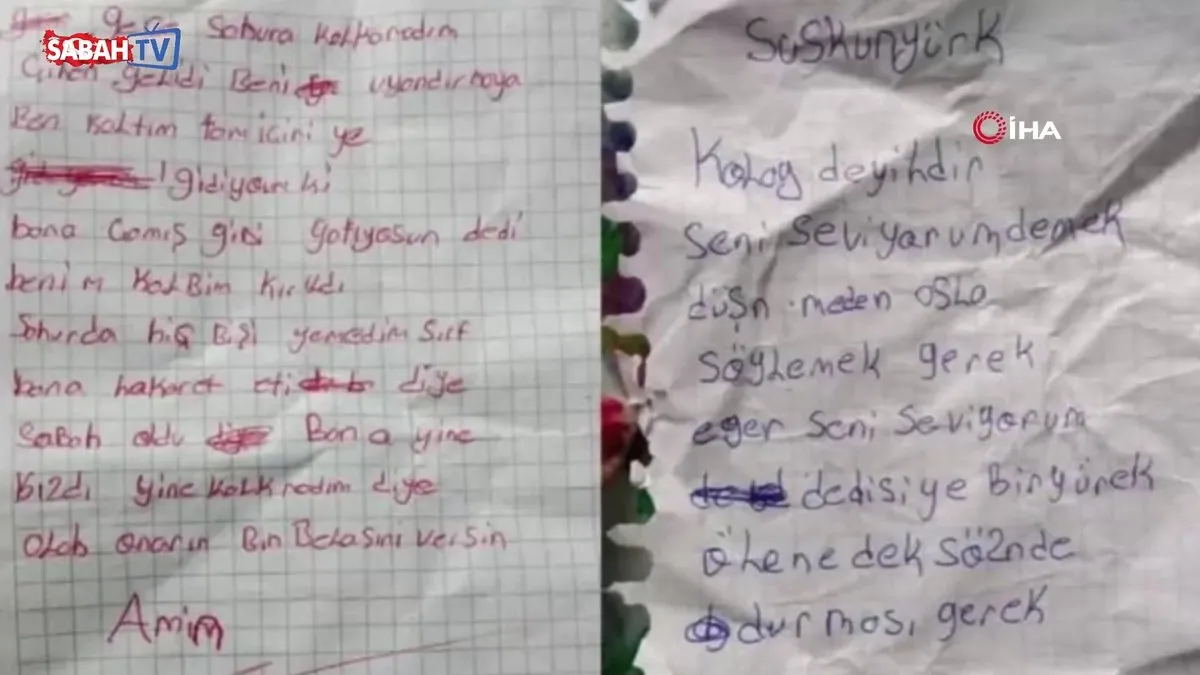 SABAH TV
Sahura kalkamadım
geldi Beni uyandırmaya
Ben kaltım tam içiri ye
gidiyom ki
bana Comış gibi yatıyosun dedi
benim kalBim kırıldı
Sahurda hiç Bişi yemedim sırf
bana hakaret eti diye
SaBah oldu Bana yine
kızdı yine kalkmadım diye
Olah onarın Bin Belasını versin
Amim
Suskunyürk
İHA
Kolog deyildir
Seni Seviyorumdemek
düşn meden osla
söylemek gerek
eğer seni Seviyorum
dedisiye Biryürek
ölene dek söznde
durması gerek